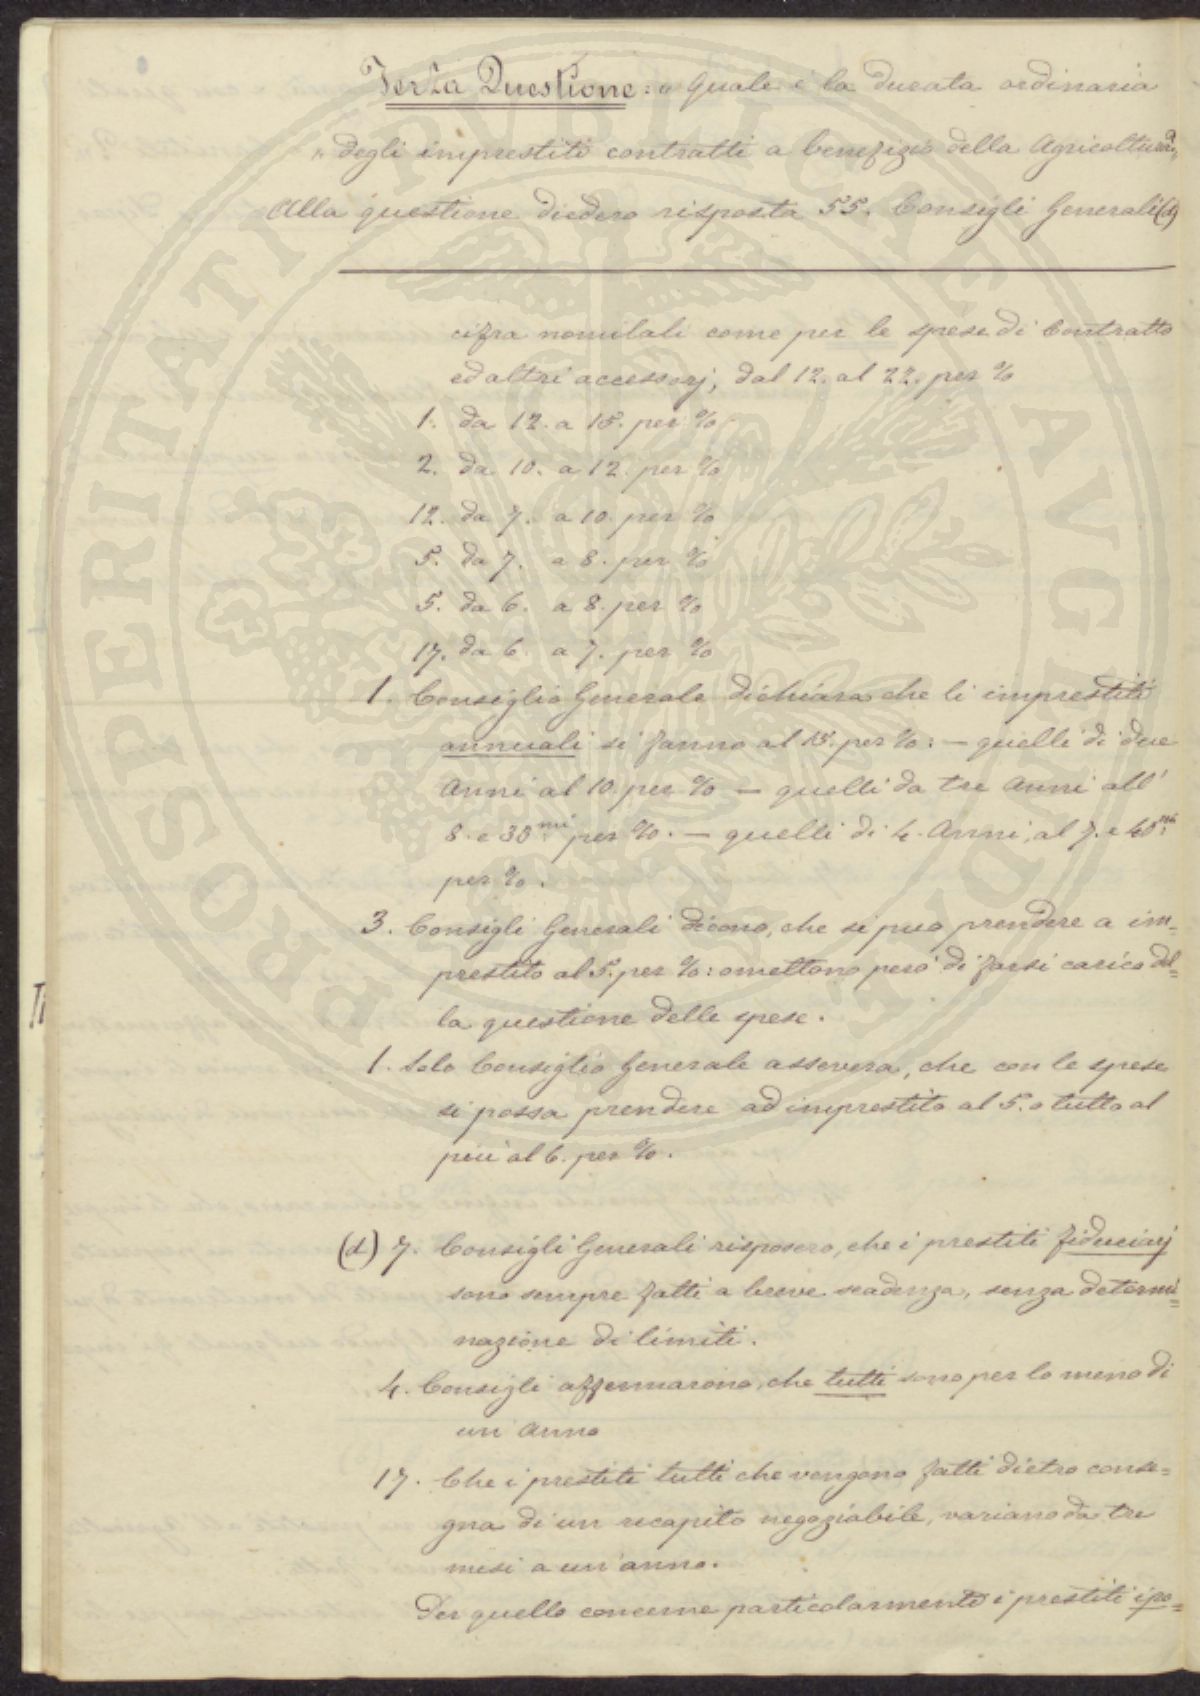 Terza Questione: „ Quale è la durata ordinaria
„ degli imprestiti contratti a benefizio della Agricoltura„
Alla questione diedero risposta 55. Consigli Generali (d)
cifra nomilali come per le spese di Contratto
ed altri accessorj, dal 12. al 22. per %
1. da 12. a 15. per %
2. da 10. a 12. per %
12. da 7. a 10. per %
5. da 7. a 8. per %
5. da 6. a 8. per %
17. da 6. a 7. per %
1. Consiglio Generale dichiara che li imprestiti
annuali si fanno al 15. per %: — quelli di due
Anni al 10. per % — quelli da tre Anni all'
8. e 38mi per %. — quelli di 4. Anni, al 7. e
per %.
3. Consigli Generali dicono, che si puo prendere a im-
prestito al 5. per %: omettono però di farsi carico del-
la questione delle spese.
1. Solo Consiglio Generale assevera, che con le spese
si possa prendere ad imprestito al 5. o tutto al
più al 6. per %.
(d) 7. Consigli Generali risposero, che i prestiti fiduciarj
sono sempre fatti a breve scadenza, senza determi=
nazione di limiti.
4. Consigli affermarono, che tutti sono per lo meno di
un Anno
17. Che i prestiti tutti che vengono fatti dietro conse=
gna di un recapito negoziabile, variano da tre
mesi a un'anno.
Per quello concerne particolarmente i prestiti ipo=
PROSPERITATI PVBLICAE AVGENDAE